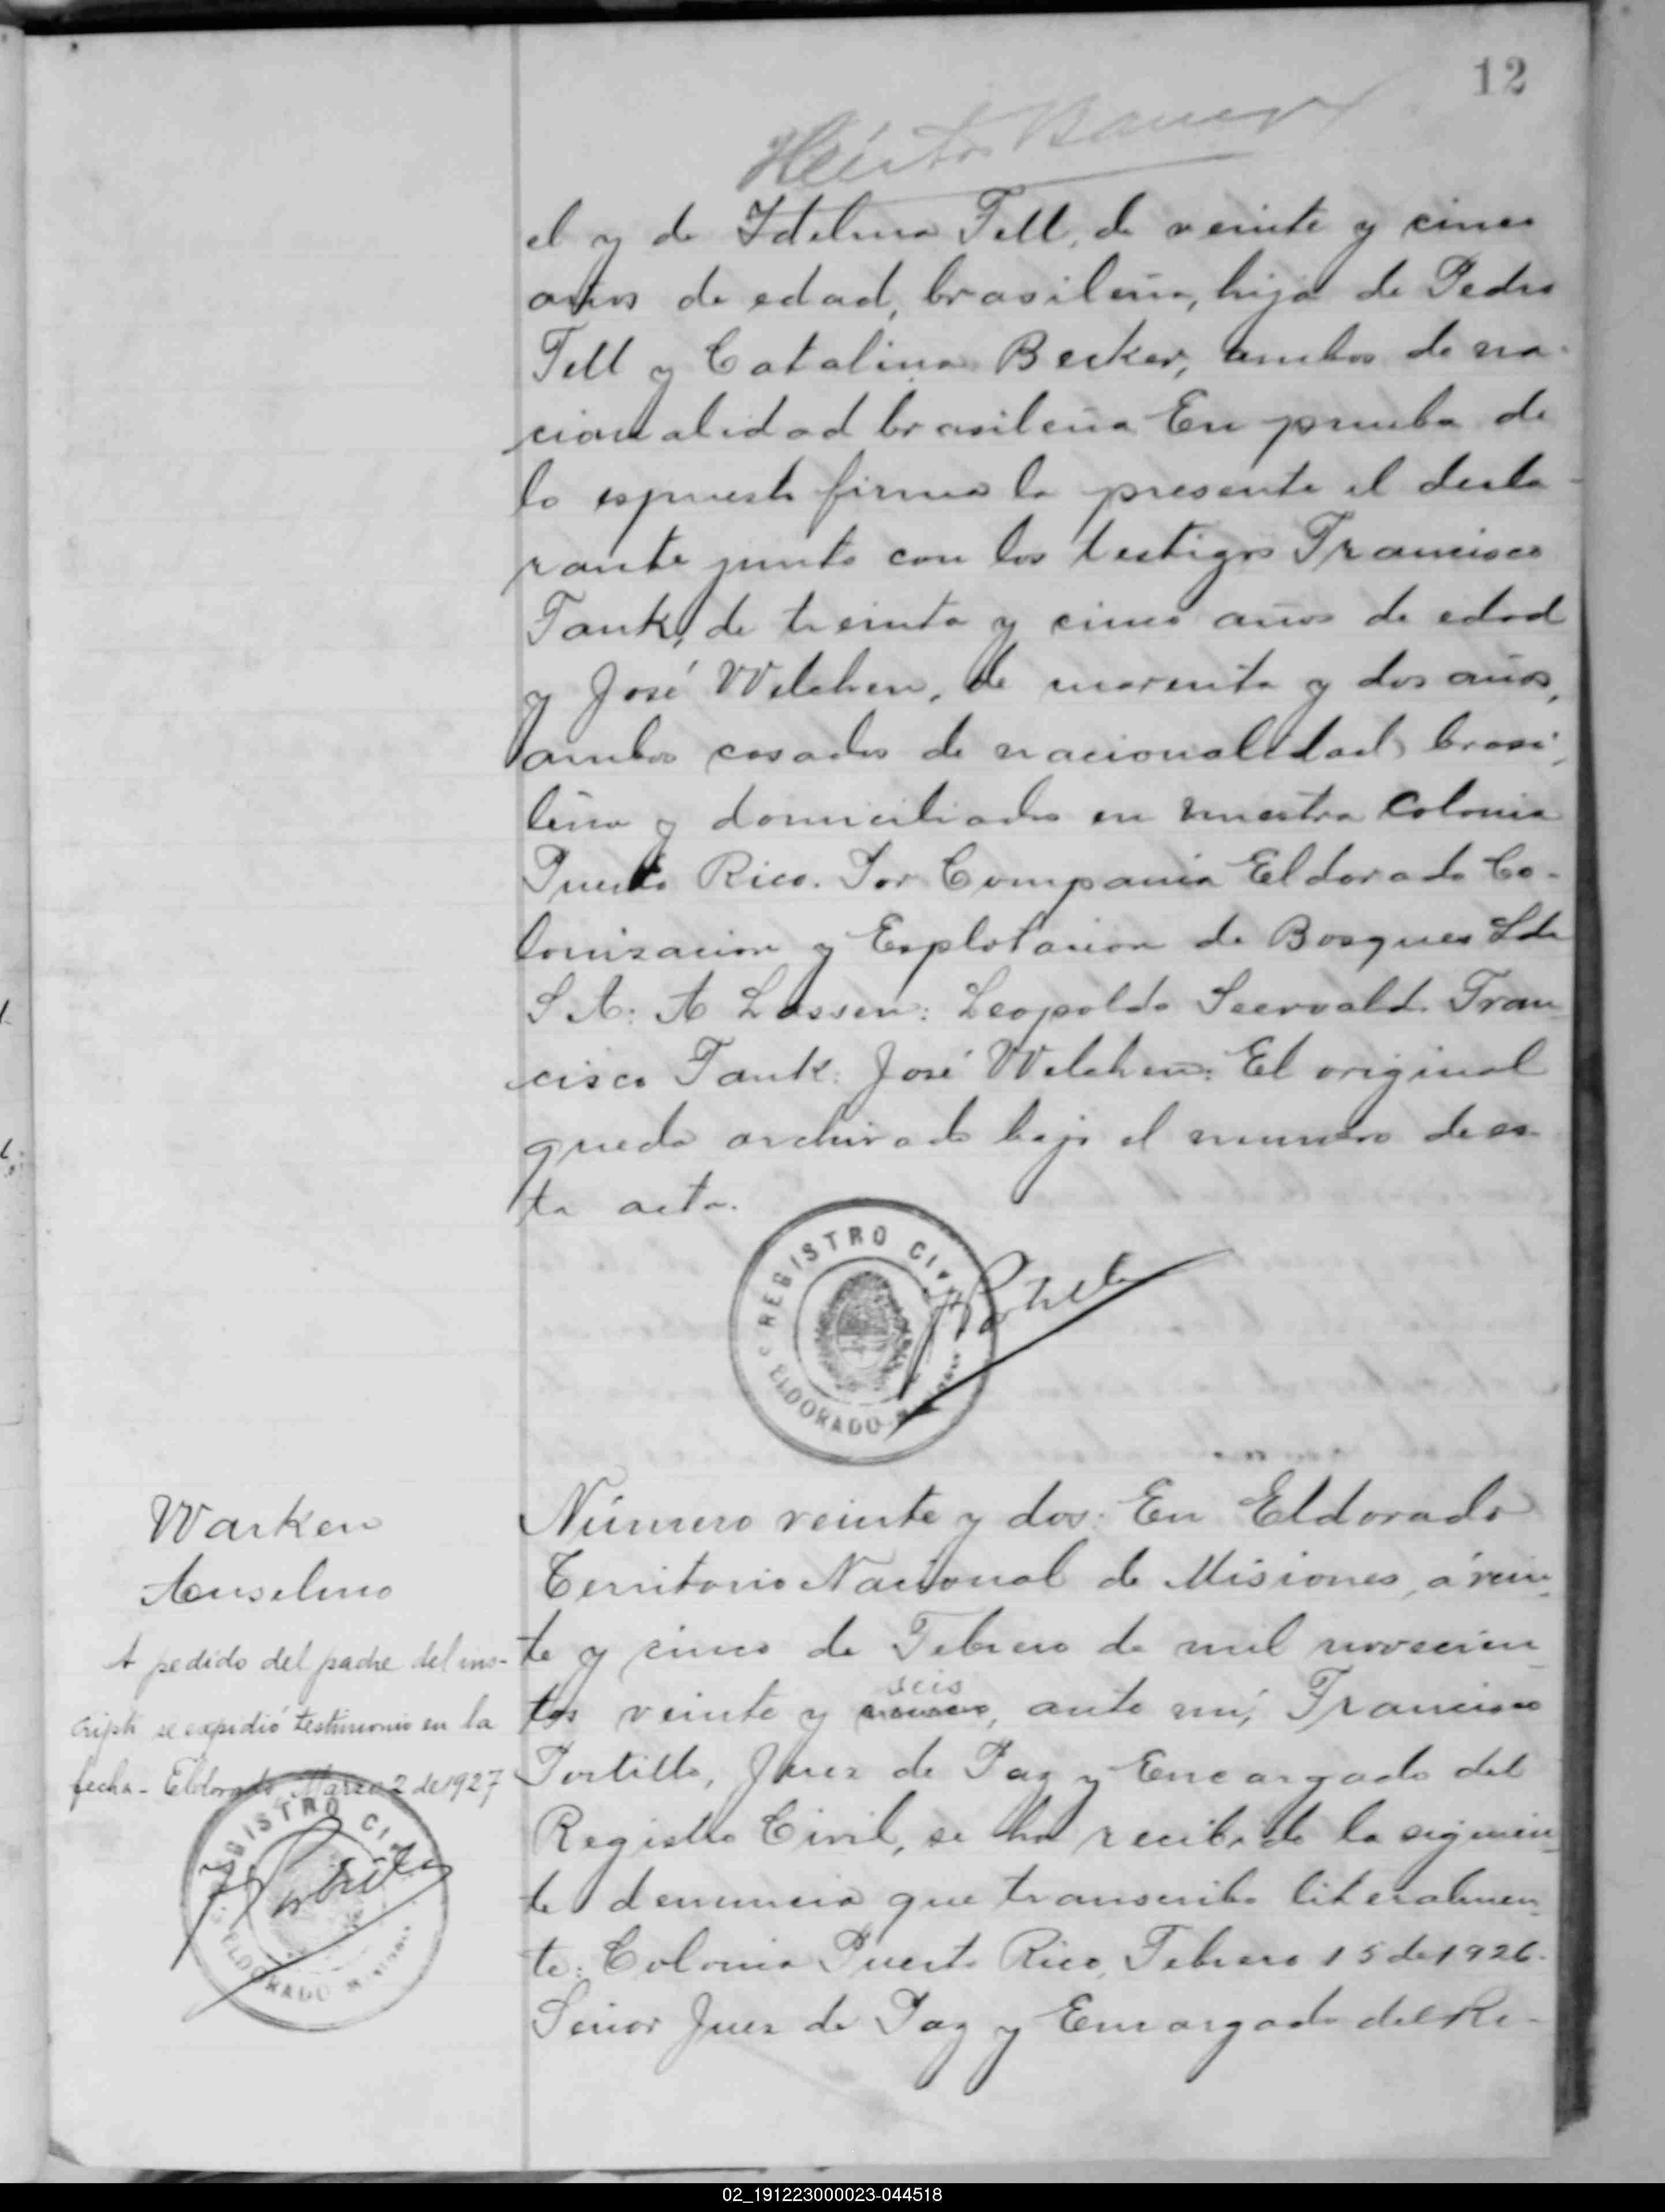 12
el y de Idelma Tell, de veinte y cinco
años de edad, brasileña, hija de Pedro
Tell y Catalina Becker, ambos de na-
cionalidad brasileña En prueba de
lo espuesto firma la presente el decla-
rante junto con los testigos Francisco
Tank, de treinta y cinco años de edad
y José Welchen, de cuarenta y dos años,
ambos casados de nacionalidad brasi-
leña y domiciliados en nuestra Colonia
Puerto Rico. Por Compania Eldorado Co-
lonizacion y Esplotacion de Bosques Lda
S. A: A Lassen: Leopoldo Seewald. Fran-
cisco Tank: José Welchen: El original
queda archivado bajo el numero de es-
ta acta.
REGISTRO CIVIL
ELDORADO
Warken
Anselmo
A pedido del padre del ins-
cripto se expidió testimonio en la
fecha - Eldorado Marzo 2 de 1927
REGISTRO CIVIL
ELDORADO
Número veinte y dos: En Eldorado
Territorio Nacional de Misiones, á vein-
te y cinco de Febrero de mil novecien-
seis
tos veinte y, ante mí, Francisco
Portillo, Juez de Paz y Encargado del
Registro Civil, se ha recibido la siguien-
te denuncia que transcribo literalmen-
te: Colonia Puerto Rico, Febrero 15 de 1926.
Señor Juez de Paz y Encargado del Re-
02_191223000023-044518